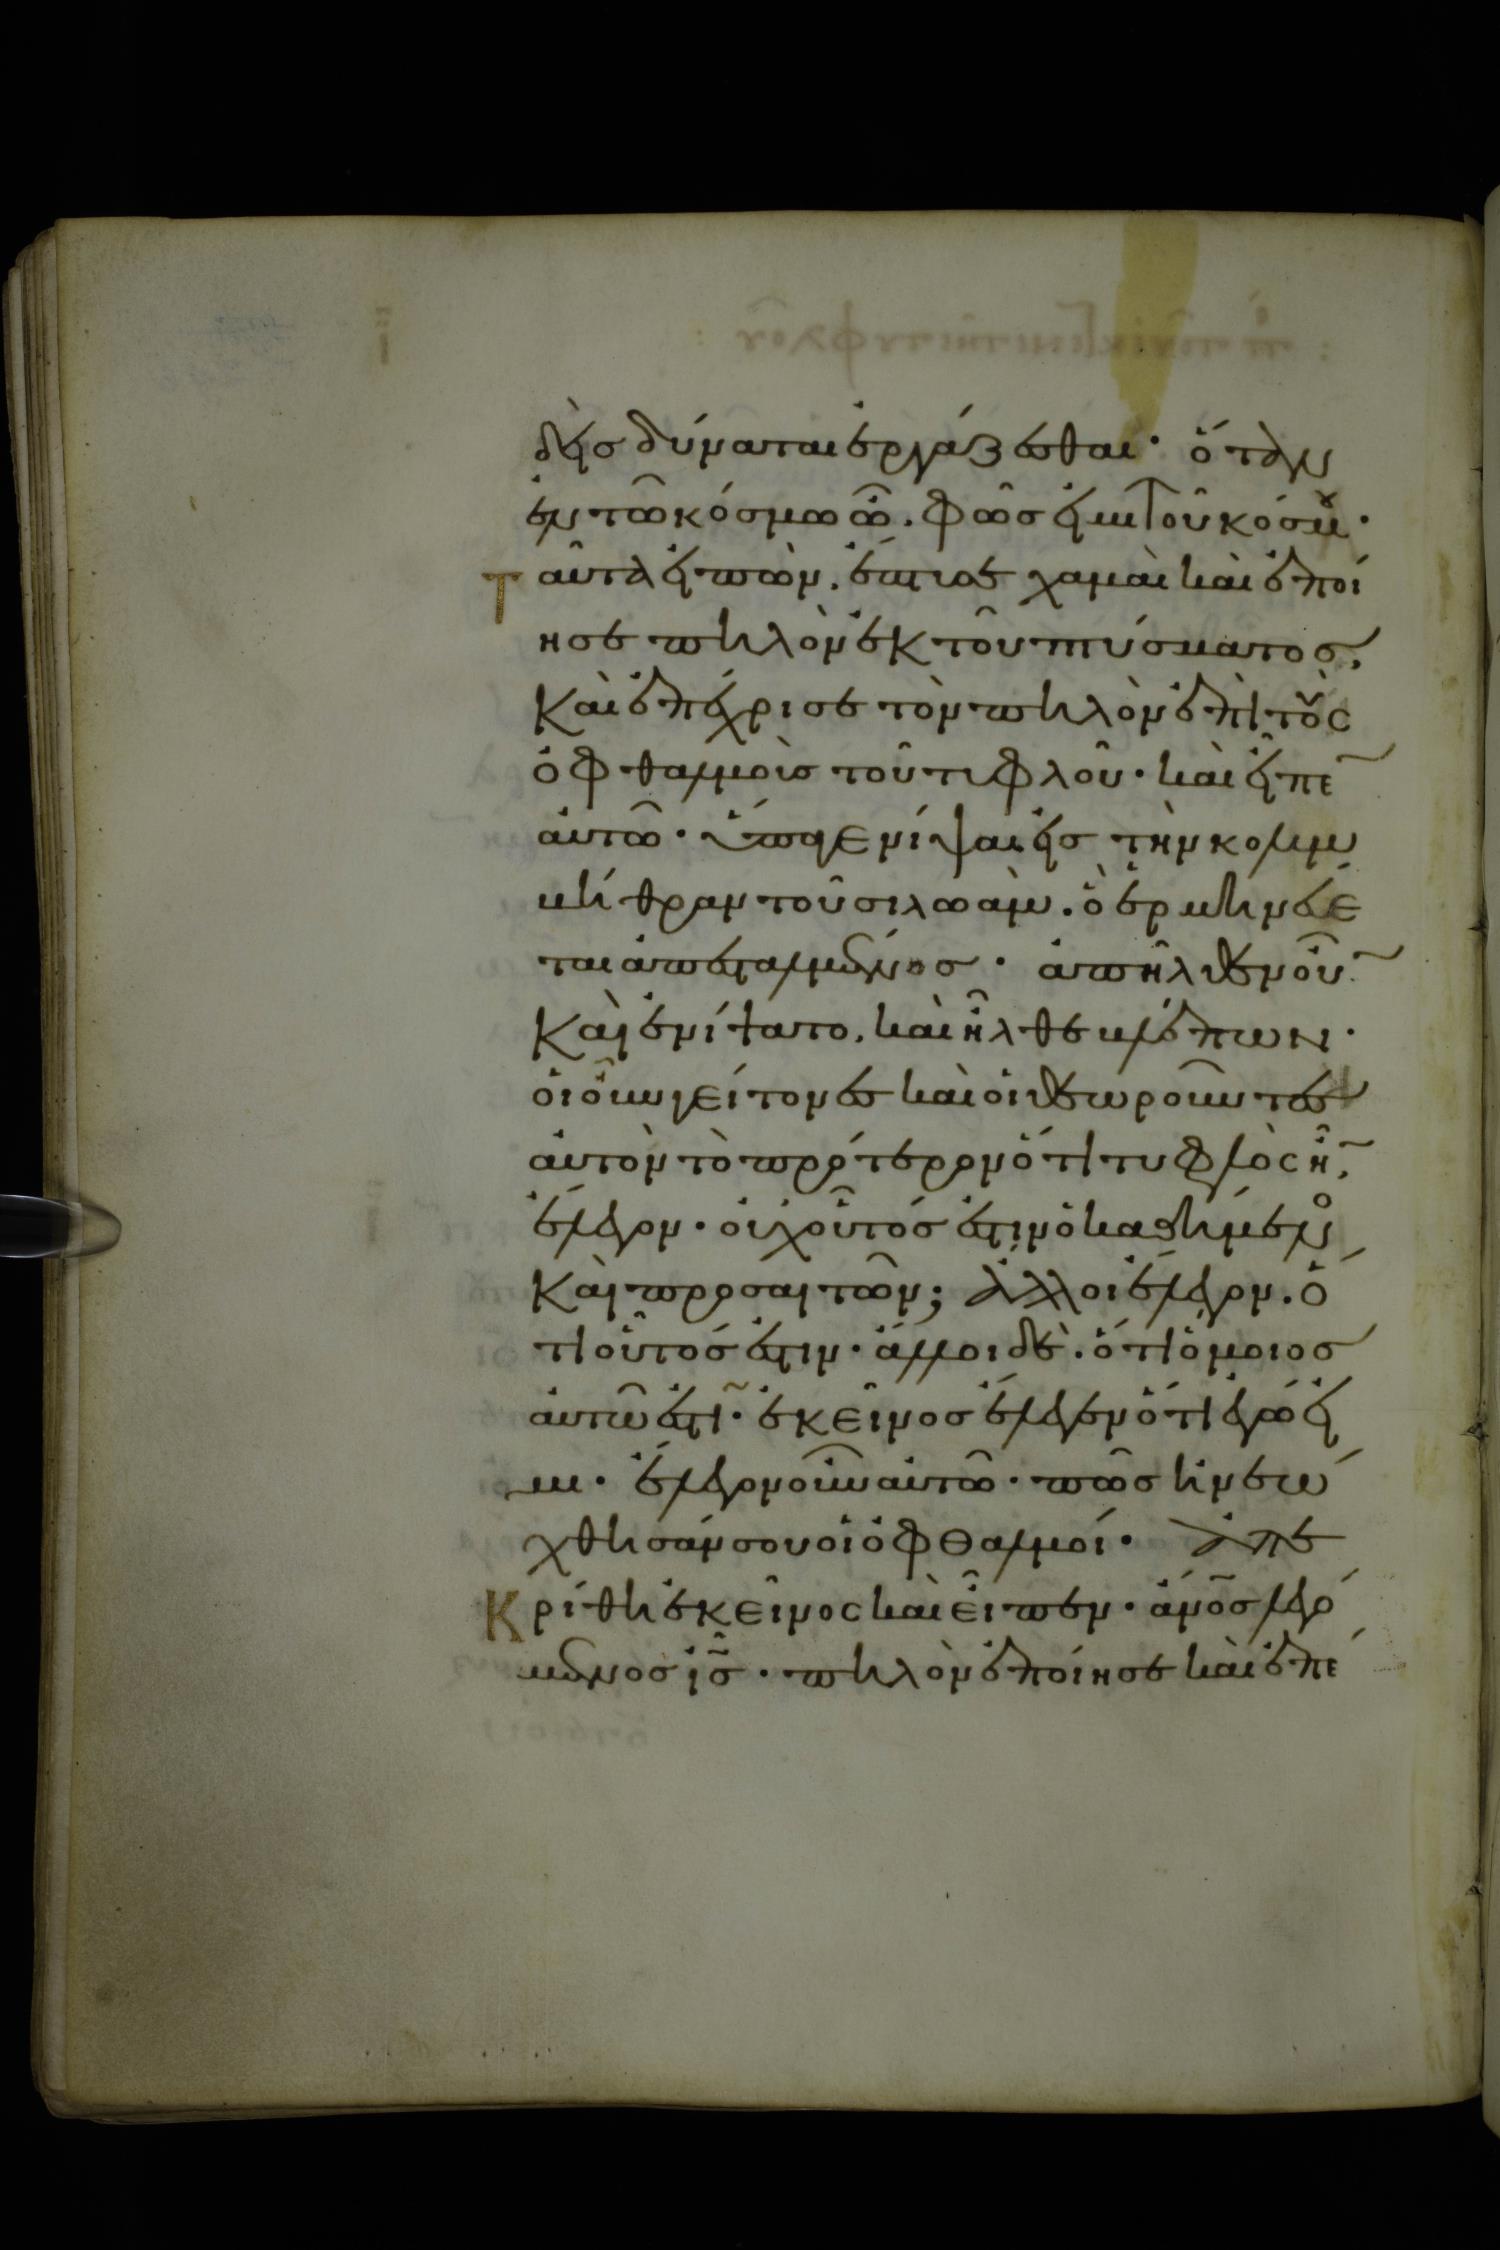 δεὶς δύναται ἐργάζεσθαι· ὅταν
ἐν τῶ κόσμω ὦ. φῶς εἰμι τοῦ κόσμου·
Ταῦτα εἰπὼν, ἔπτυσε χαμαὶ καὶ ἐποί
ησε πηλὸν ἐκ τοῦ πτύσματος,
Καὶ ἐπέχρισε τὸν πηλὸν ἐπὶ τοὺς
ὀφθαλμοὺς τοῦ τυφλοῦ· καὶ εἶπε
αὐτῶ· ὕπαγε νίψαι εἰς τὴν κολυμ
βήθραν τοῦ σιλωάμ. ὃ ἑρμηνεύε
ται ἀπεσταλμένος· ἀπῆλθεν οὖν
Καὶ ἐνίψατο, καὶ ἦλθε βλέπων·
οἱ οὖν γείτονες καὶ οἱ θεωροῦντες
αὐτὸν τὸ πρότερον ὅτι τυφλὸς ἦν,
ἔλεγον· οὐχ οὗτός ἐστιν ὁ καθήμενος
Καὶ προσαιτῶν; ἄλλοι ἔλεγον. ὅ
τι οὗτός ἐστιν· ἄλλοι δὲ. ὅτι ὅμοιος
αὐτῶ ἐστι· ἐκεῖνος ἔλεγεν ὅτι ἐγώ εἰ
μι· ἔλεγον οὖν αὐτῶ· πῶς ἠνεώ
χθησάν σου οἱ ὀφθαλμοί· ἀπε
Κρίθη ἐκεῖνος καὶ εἶπεν· ἄνος λεγό
μενος ἰς· πηλὸν ἐποίησε καὶ ἐπέ